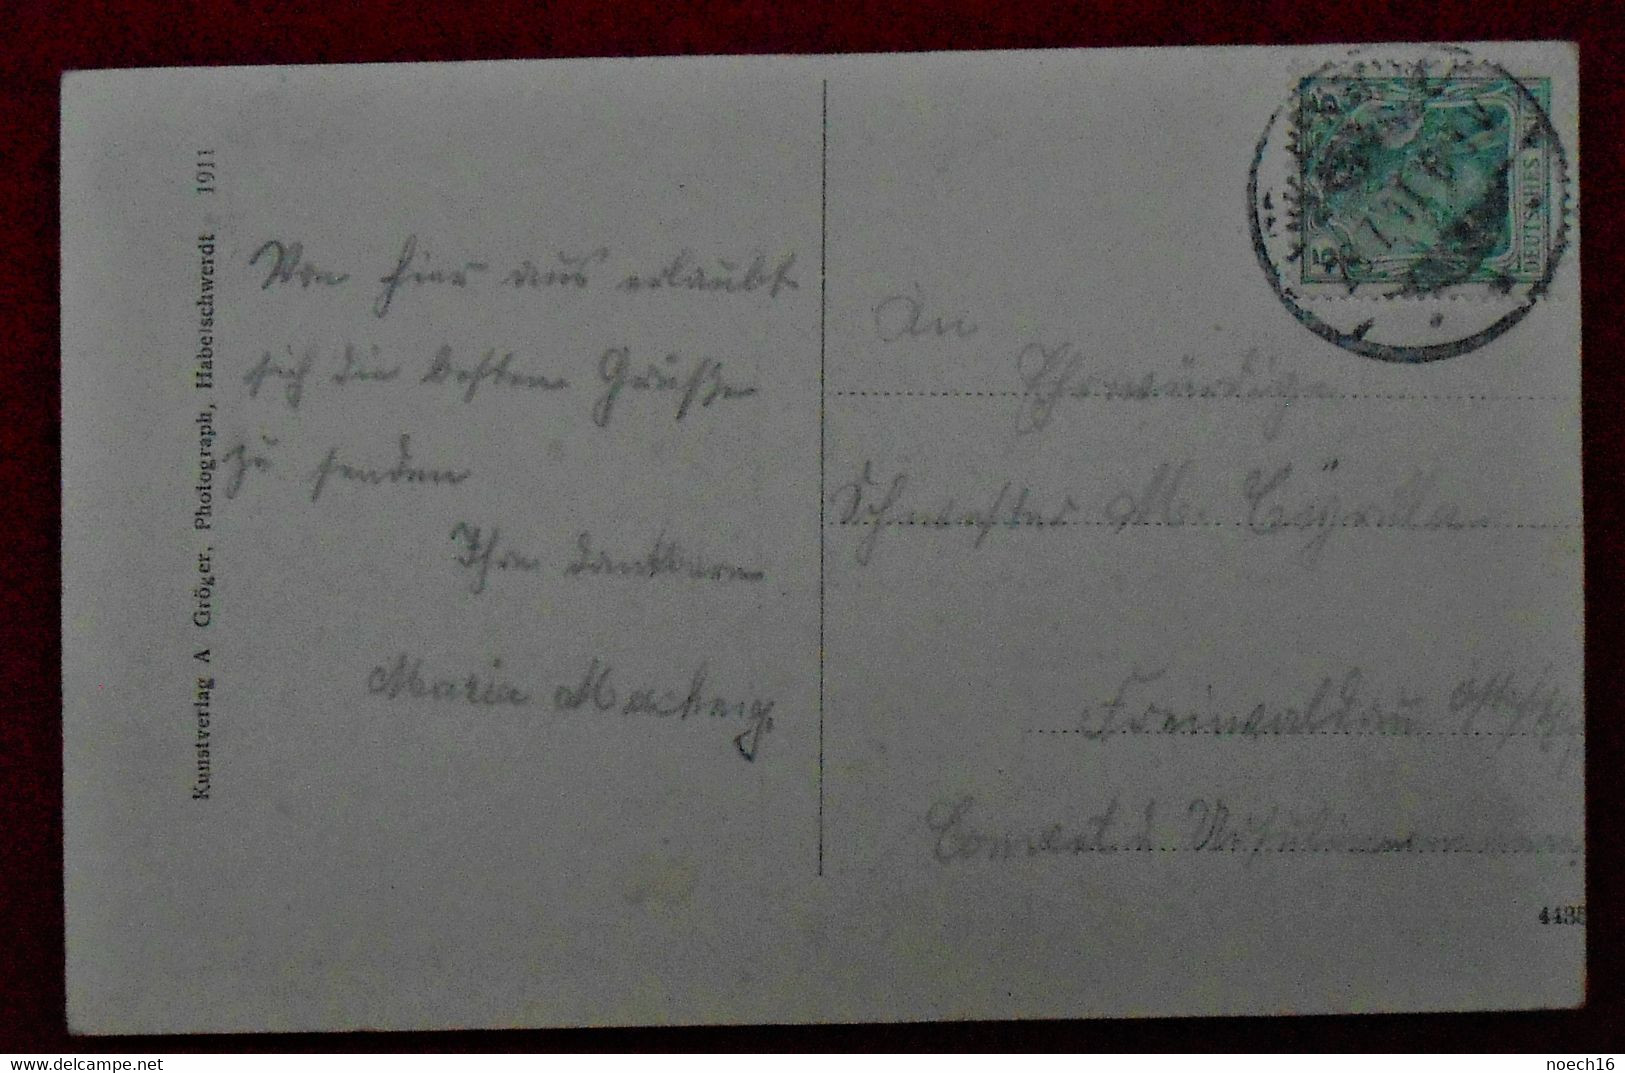 Kunstverlag A Gröger, Photograph, Habelschwerdt 1911
Von hier aus erlaubt
sich die besten Grüße
zu senden
Ihre dankbare
Maria
DEUTSCHES
5
An
Ehrwürdige
Schwester M. Cÿrilla
Freiwaldau
Convent d. Ursulinerinnen
443
noech16